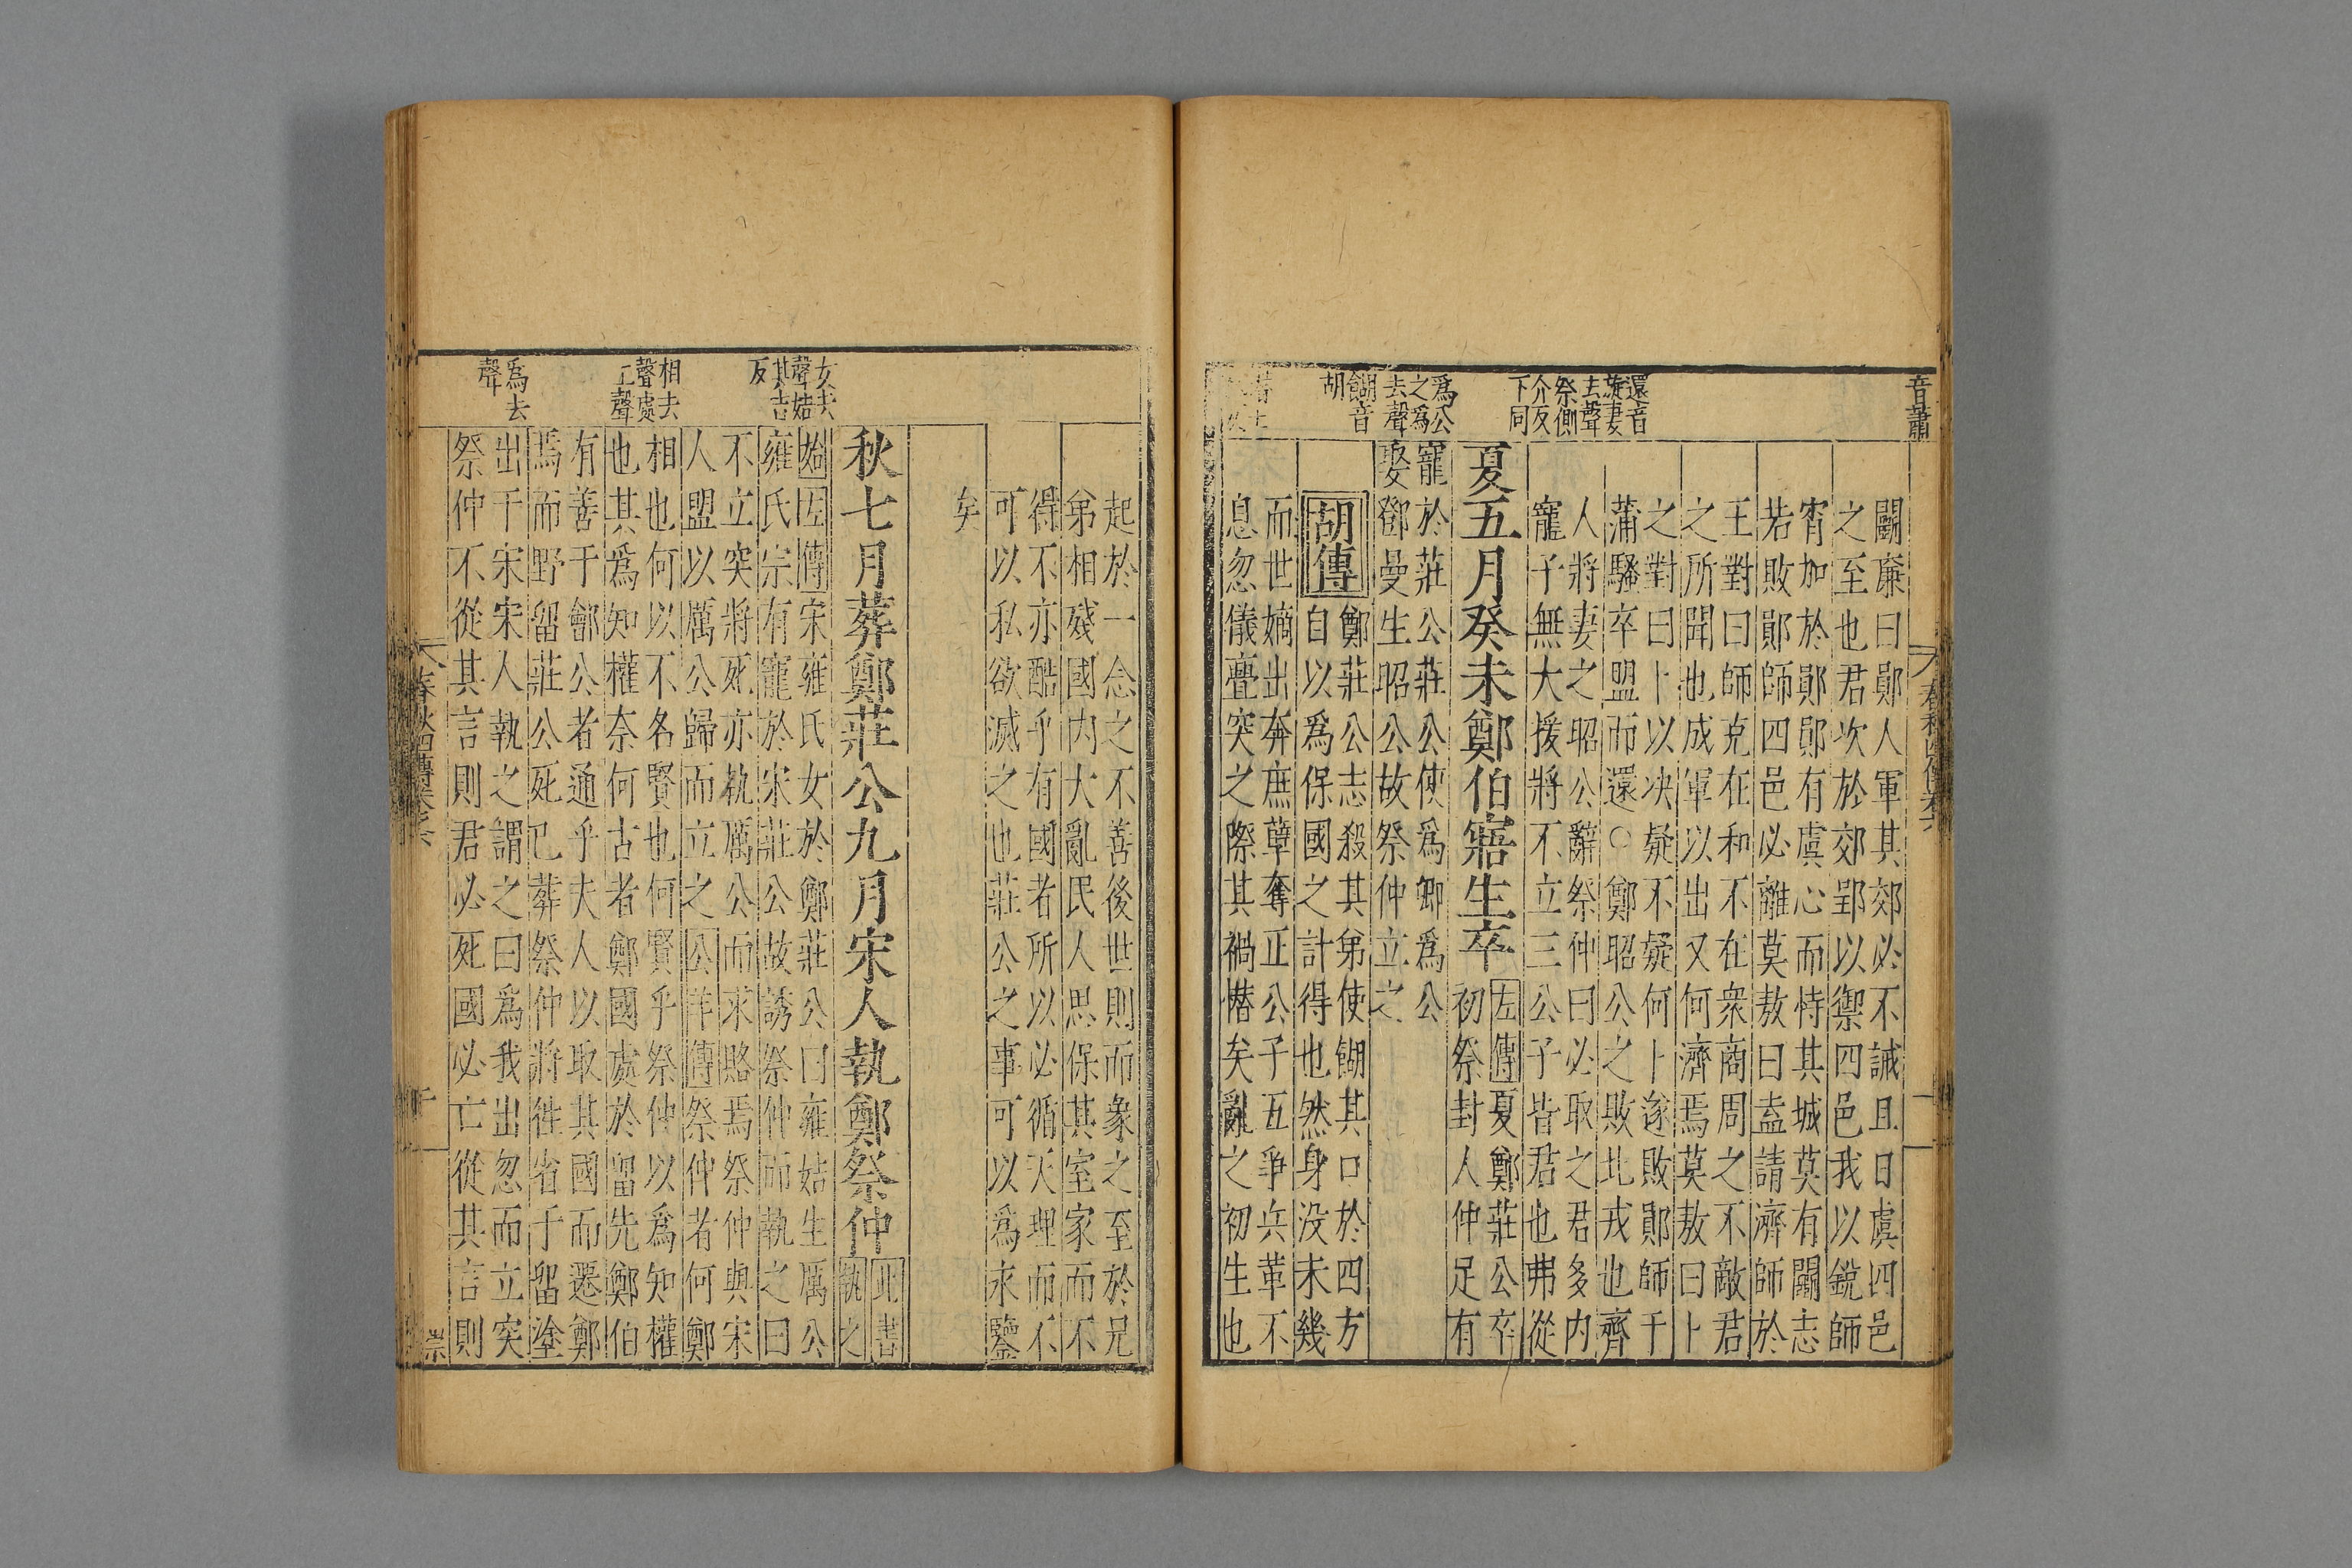 音蕭
還音
旋妻
去聲
祭側
介反
下同
爲公
之爲
去聲
餬音
胡
鬬廉曰鄖人軍其郊必不誡且日虞四邑
之至也君次於郊郢以禦四邑我以銳師
宵加於鄖鄖有虞心而恃其城莫有鬬志
若敗鄖師四邑必離莫敖曰盍請濟師於
王對曰師克在和不在衆商周之不敵君
之所聞也成軍以出又何濟焉莫敖曰卜
之對曰卜以决疑不疑何卜遂敗鄖師于
蒲騷卒盟而還○鄭昭公之敗北戎也齊
人將妻之昭公辭祭仲曰必取之君多内
寵子無大援將不立三公子皆君也弗從
夏五月癸未鄭伯寤生卒
左傳夏鄭莊公卒
初祭封人仲足有
寵於莊公莊公使爲卿爲公
娶鄧曼生昭公故祭仲立之
胡傳
鄭莊公志殺其弟使餬其口於四方
自以爲保國之計得也然身没未幾
而世嫡出奔庶孽奪正公子五爭兵革不
息忽儀亹突之際其禍憯矣亂之初生也
春秋四傳卷六
女去
聲姞
其吉
反
相去
聲處
上聲
爲去
聲
起於一念之不善後世則而象之至於兄
弟相殘國内大亂民人思保其室家而不
得不亦酷乎有國者所以必循天理而不
可以私欲滅之也莊公之事可以爲永鑒
矣
秋七月葬鄭莊公九月宋人執鄭祭仲
此書
執之
始左傳宋雍氏女於鄭莊公曰雍姞生厲公
雍氏宗有寵於宋莊公故誘祭仲而執之曰
不立突將死亦執厲公而求賂焉祭仲與宋
人盟以厲公歸而立之公羊傳祭仲者何鄭
相也何以不名賢也何賢乎祭仲以爲知權
也其爲知權奈何古者鄭國處於留先鄭伯
有善于鄶公者通乎夫人以取其國而遷鄭
焉而野留莊公死已葬祭仲將往省于留塗
出于宋宋人執之謂之曰爲我出忽而立突
祭仲不從其言則君必死國必亡從其言則